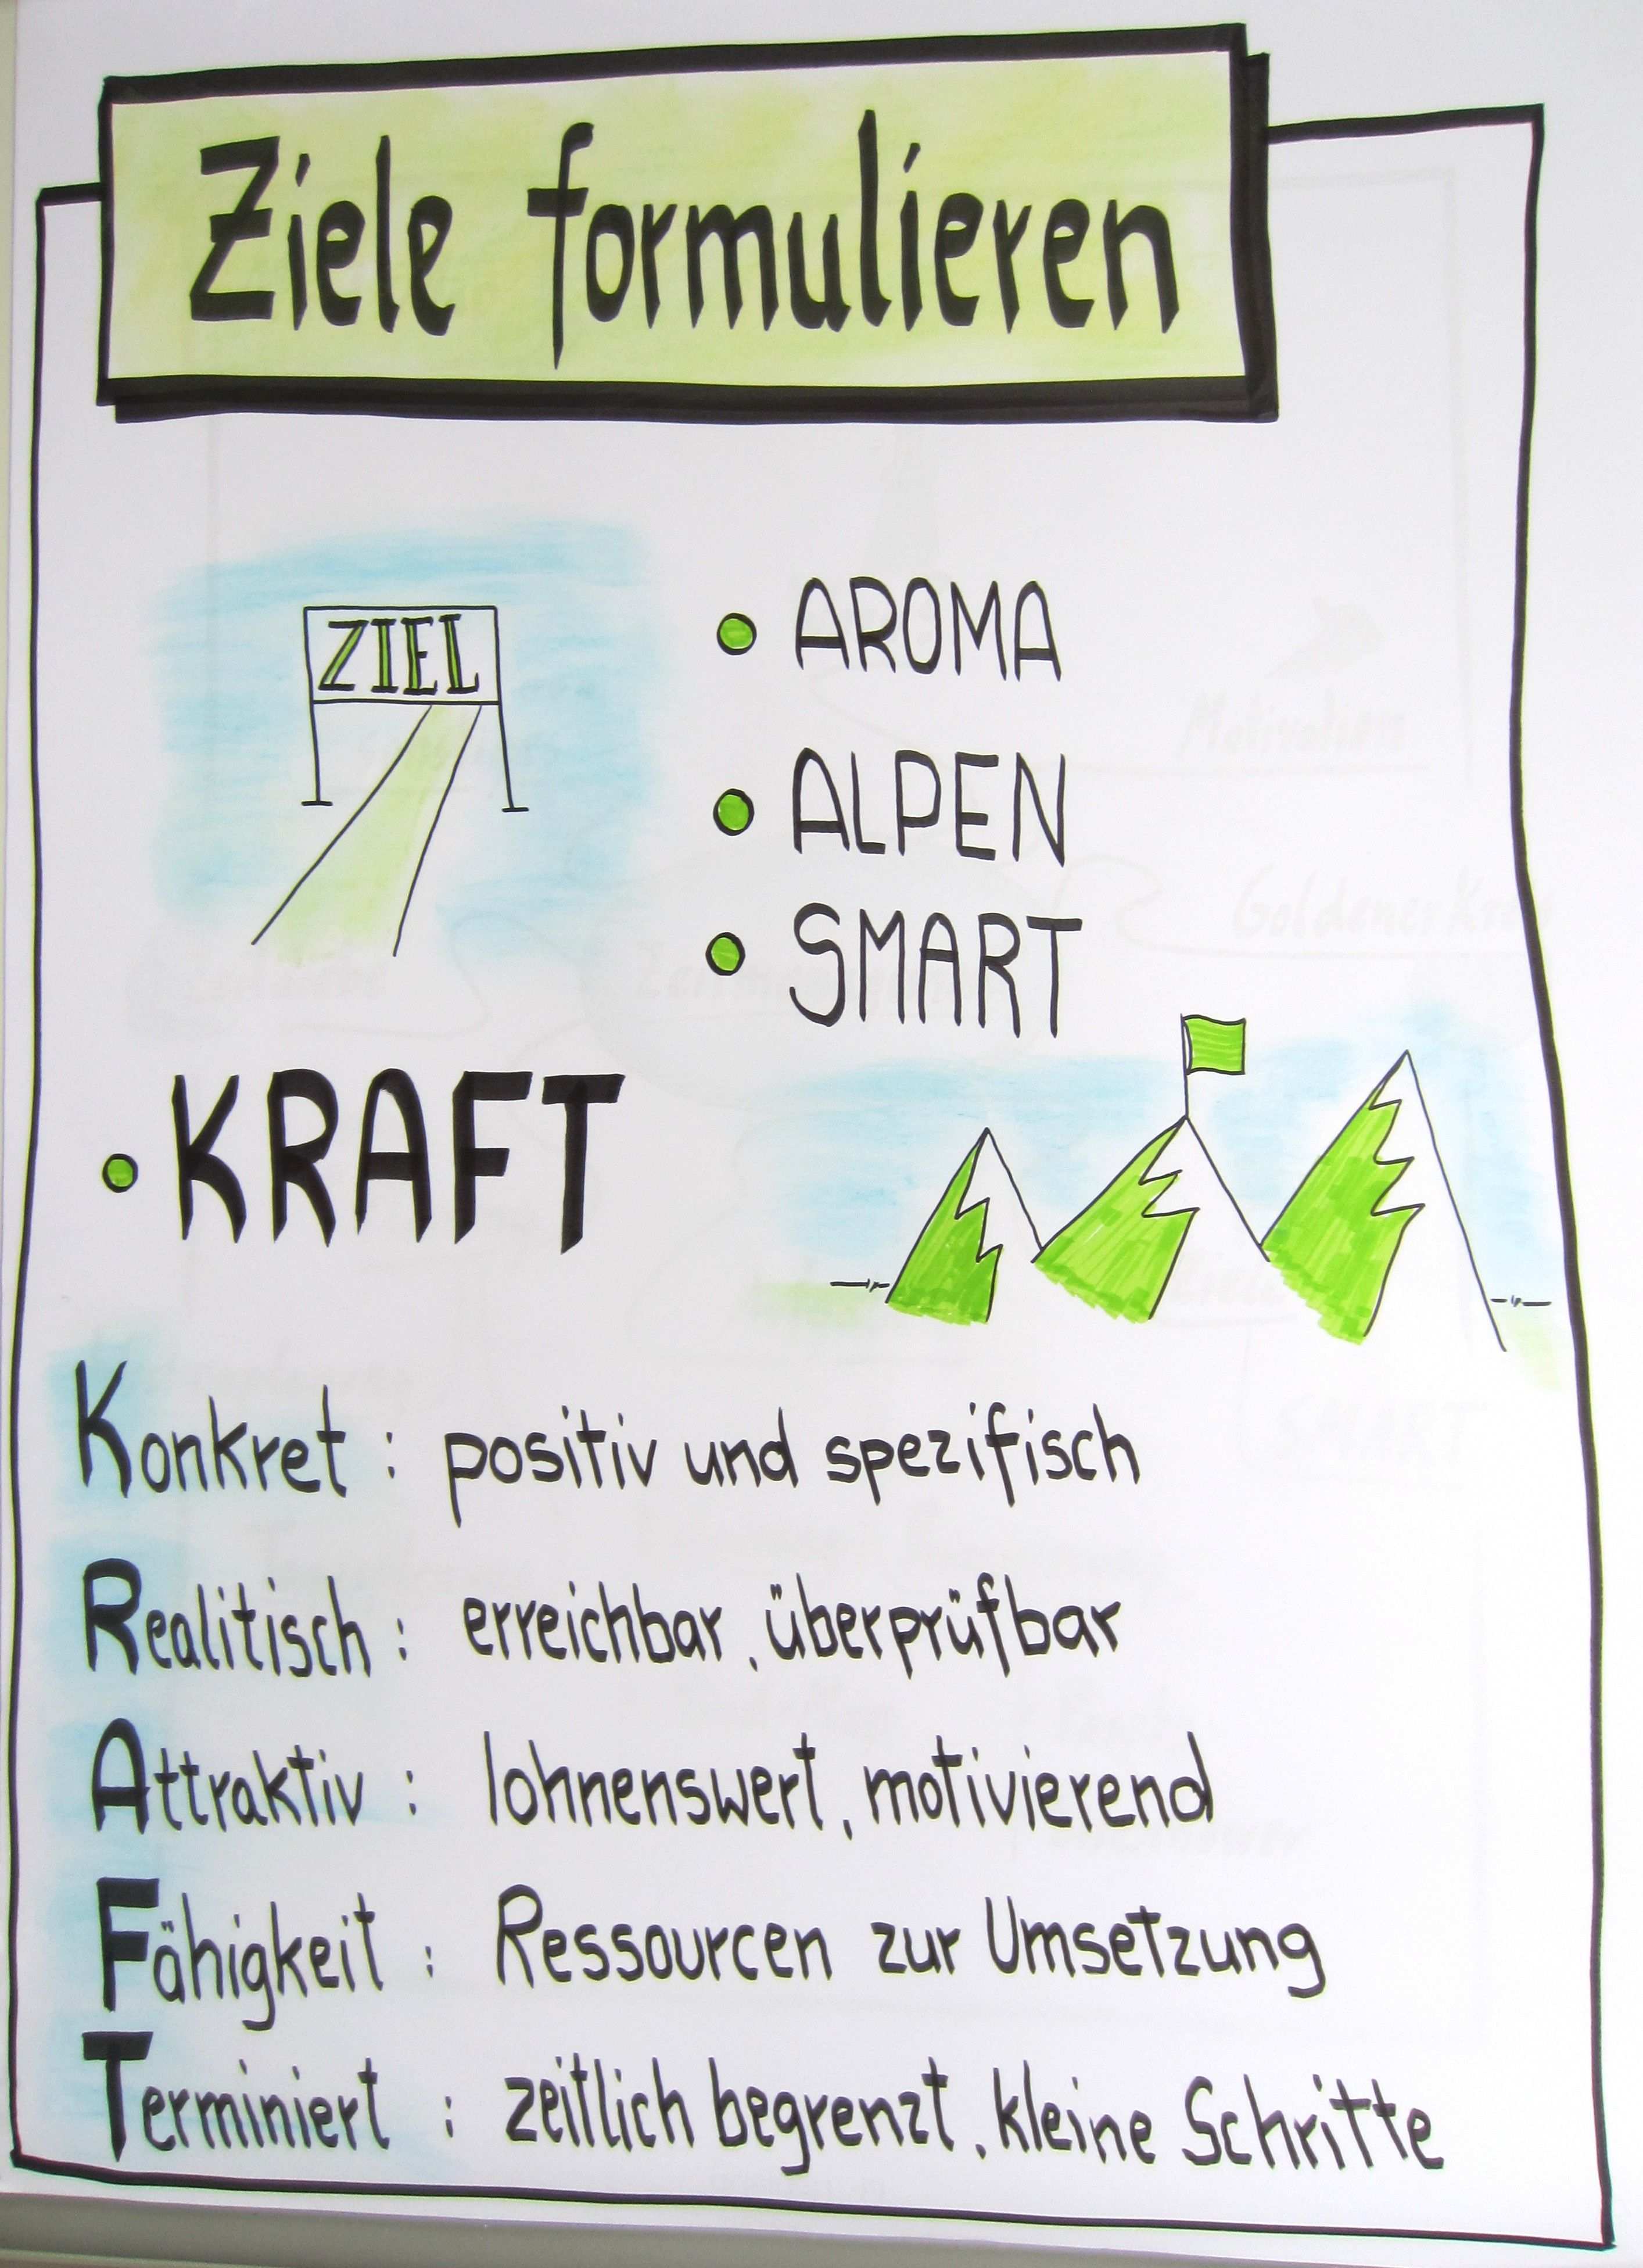 Ziele formulieren
ZIEL
• AROMA
• ALPEN
• SMART
• KRAFT
Konkret : positiv und spezifisch
Realitisch : erreichbar, überprüfbar
Attraktiv : lohnenswert, motivierend
Fähigkeit : Ressourcen zur Umsetzung
Terminiert : zeitlich begrenzt, kleine Schritte
Motivation
Goldener Kreis